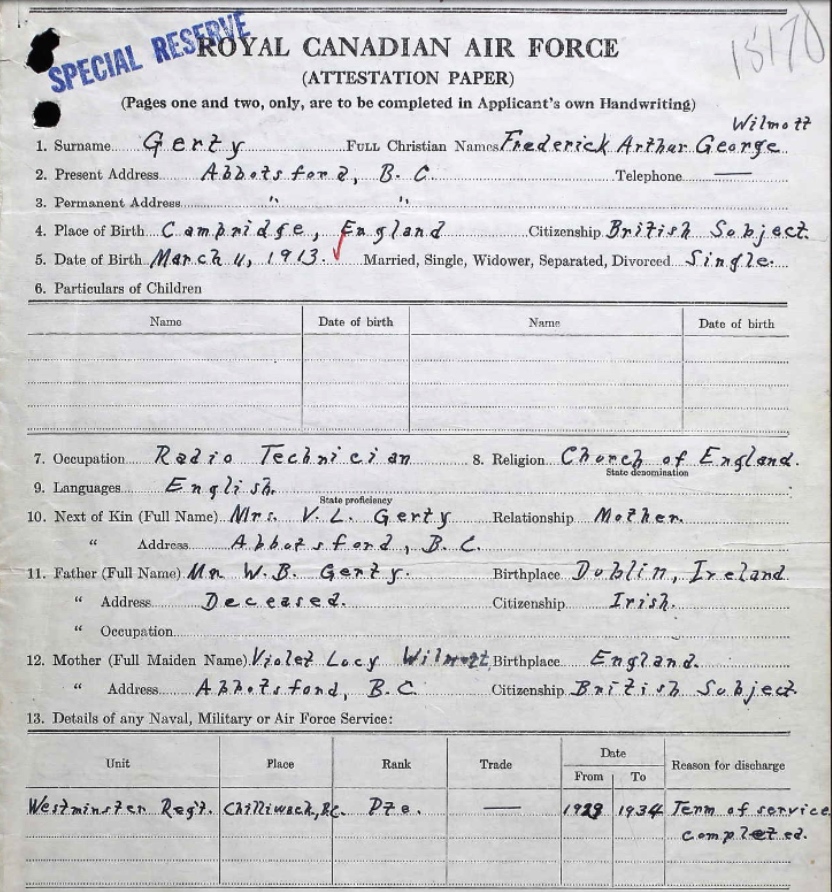 SPECIAL RESERVE
15170
ROYAL CANADIAN AIR FORCE
(ATTESTATION PAPER)
(Pages one and two, only, are to be completed in Applicant's own Handwriting)
Wilmott
1. Surname Gerty FULL Christian Names Frederick Arthur George
2. Present Address Abbotsford, B.C. Telephone —
3. Permanent Address " "
4. Place of Birth Cambridge, England Citizenship British Subject.
5. Date of Birth March 4, 1913. Married, Single, Widower, Separated, Divorced Single.
6. Particulars of Children
Name Date of birth Name Date of birth
7. Occupation Radio Technician 8. Religion Church of England.
State denomination
9. Languages English.
State proficiency
10. Next of Kin (Full Name) Mrs. V. L. Gerty Relationship Mother.
" Address Abbotsford, B.C.
11. Father (Full Name) Mr. W. B. Gerty. Birthplace Dublin, Ireland
" Address Deceased. Citizenship Irish.
" Occupation
12. Mother (Full Maiden Name) Violet Lucy Wilmott Birthplace England.
" Address Abbotsford, B.C. Citizenship British Subject.
13. Details of any Naval, Military or Air Force Service:
Unit Place Rank Trade Date Reason for discharge
From To
Westminster Regt. Chilliwack, B.C. Pte. — 1929 1934 Term of service
completed.